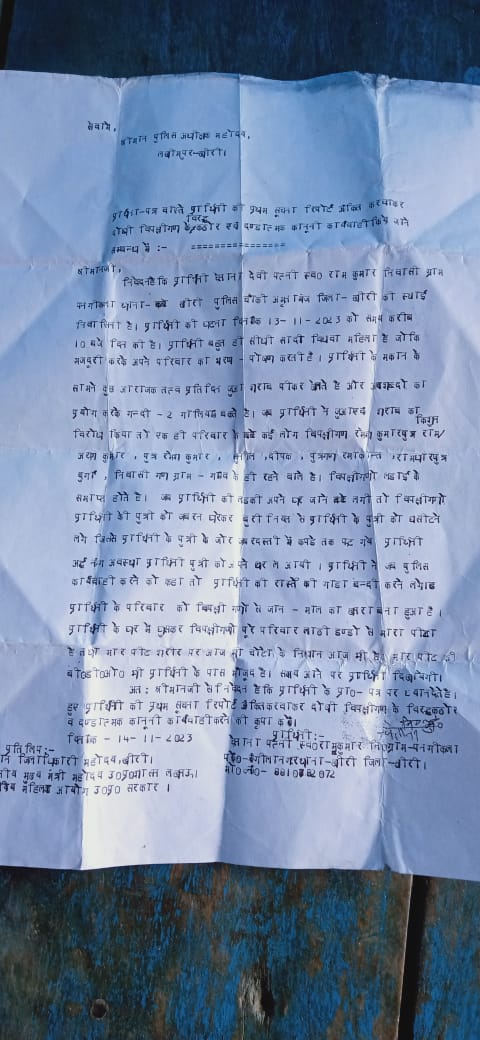 सेवामें,
श्रीमान पुलिस अधीक्षक महोदय,
लखीमपुर-खीरी।
प्रार्थना-पत्र वास्ते प्रार्थिनी की प्रथम सूचना रिपोर्ट अंकित करवाकर
दोषी विपक्षीगण के विरुद्ध कठोर एवं दण्डात्मक कानूनी कार्यवाही किये जाने
सम्बन्ध में :- ================
श्रीमानजी,
निवेदन है कि प्रार्थिनी देवी पत्नी स्व0 राम कुमार निवासी ग्राम
थाना- खीरी पुलिस चौकी जिला- खीरी की स्थाई
निवासिनी है। प्रार्थिनी की घटना दिनांक 13-11-2023 को समय करीब
10 बजे दिन की है। प्रार्थिनी बहुत ही सीधी सादी विधवा महिला है जोकि
मजदूरी करके अपने परिवार का भरण - पोषण करती है । प्रार्थिनी के मकान के
सामने कुछ अराजक तत्व प्रतिदिन जुआ शराब पीकर खेलते है और अपशब्दो का
प्रयोग करके गन्दी - 2 गालियां बकते है। जब प्रार्थिनी ने जुआ एवं शराब का
विरोध किया तो एक ही परिवार के कई लोग विपक्षीगण रमेश कुमार पुत्र राम
कुमार , पुत्र रमेश कुमार , , दीपक , पुत्रगण रमाकान्त , पुत्र
, निवासी गण ग्राम - के ही रहने वाले है। विपक्षीगण लड़ाई के
समाप्त होते है। जब प्रार्थिनी की लड़की अपने घर जाने लगी तो विपक्षीगणो
प्रार्थिनी की पुत्री को जबरन घेरकर बुरी नियत से प्रार्थिनी के पुत्री को घसीटने
लगे जिससे प्रार्थिनी के पुत्री के जोर जबरदस्ती में कपडे तक फट गये प्रार्थिनी
अर्द्ध नंग अवस्था प्रार्थिनी पुत्री को अपने घर ले आयी । प्रार्थिनी ने जब पुलिस
कार्यवाही करने को कहा तो प्रार्थिनी को रास्ते की बन्दी करने लगे
प्रार्थिनी के परिवार को विपक्षी गणो से जान - माल का खतरा बना हुआ है ।
प्रार्थिनी के घर में घुसकर विपक्षीगणो पूरे परिवार लाठी डण्डो से मारा पीटा
है तथा मार पीट शरीर पर आज भी चोटो के निशान आज भी है मार पीट की
वी0डी0ओ0 भी प्रार्थिनी के पास मौजूद है। समय आने पर प्रार्थिनी
अत: श्रीमानजी से निवेदन है कि प्रार्थिनी के प्रा0- पत्र पर ध्यान देते
हुए प्रार्थिनी की प्रथम सूचना रिपोर्ट अंकित करवाकर दोषी विपक्षीगण के विरुद्ध कठोर
व दण्डात्मक कानूनी कार्यवाही करने की कृपा करें।
दिनांक - 14-11-2023 प्रार्थिनी:-
प्रतिलिपि:- पत्नी स्व0 रामकुमार नि0 ग्राम-
जिलाधिकारी महोदय,खीरी। थाना-खीरी जिला-खीरी।
मुख्य मंत्री महोदय उ0प्र0 लखनऊ।
महिला आयोग उ0प्र0 सरकार ।